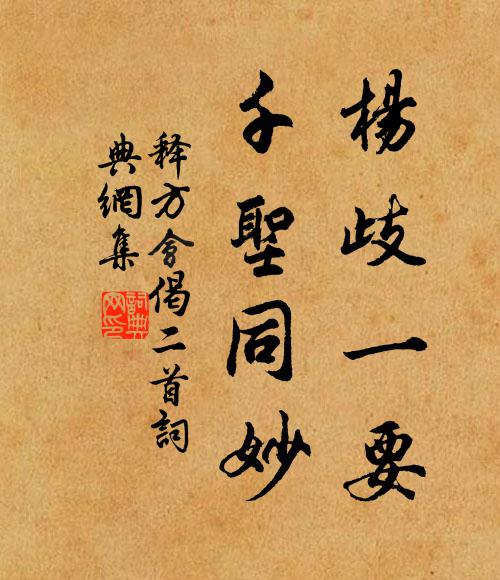 楊歧一要
千聖同妙
释方会偈二首詞
典網集
詞典
网印